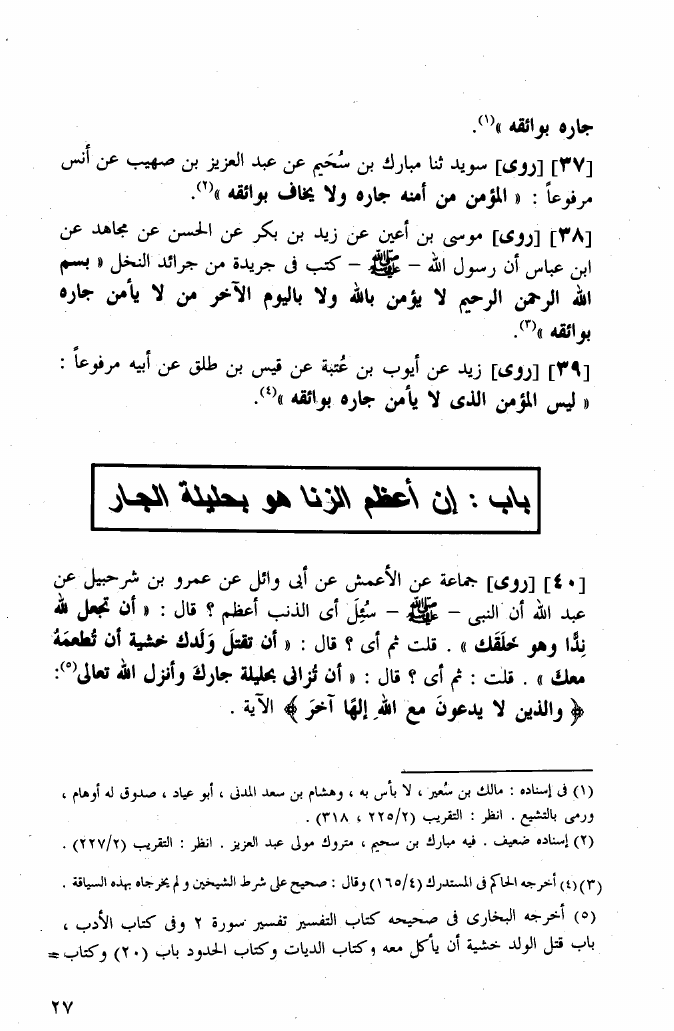 جاره بوائقه »(١).
[٣٧] [روى] سويد ثنا مبارك بن سُحَيم عن عبد العزيز بن صهيب عن أنس
مرفوعاً : « المؤمن من أمنه جاره ولا يخاف بوائقه »(٢).
[٣٨] [روى] موسى بن أعين عن زيد بن بكر عن الحسن عن مجاهد عن
ابن عباس أن رسول الله – ﷺ – كتب فى جريدة من جرائد النخل « بسم
الله الرحمن الرحيم لا يؤمن بالله ولا باليوم الآخر من لا يأمن جاره
بوائقه »(٣).
[٣٩] [روى] زيد عن أيوب بن عُتبة عن قيس بن طلق عن أبيه مرفوعاً :
« ليس المؤمن الذى لا يأمن جاره بوائقه »(٤).
باب : إن أعظم الزنا هو بحليلة الجار
[٤٠] [روى] جماعة عن الأعمش عن أبى وائل عن عمرو بن شرحبيل عن
عبد الله أن النبى – ﷺ – سُئِلَ أى الذنب أعظم ؟ قال : « أن تجعل لله
نِدًّا وهو خَلَقَك » . قلت ثم أى ؟ قال : « أن تقتلَ وَلَدك خشية أن تُطعمَهُ
معكَ » . قلت : ثم أى ؟ قال : « أن تُزانى بحليلة جاركَ وأنزل الله تعالى(٥):
﴿ والذين لا يدعونَ مع اللهِ إلهًا آخرَ ﴾ الآية .
(١) فى إسناده : مالك بن سُعير ، لا بأس به ، وهشام بن سعد المدنى ، أبو عياد ، صدوق له أوهام ،
ورمى بالتشيع . انظر : التقريب (٢٢٥/٢ ، ٣١٨) .
(٢) إسناده ضعيف . فيه مبارك بن سحيم ، متروك مولى عبد العزيز . انظر : التقريب (٢٢٧/٢) .
(٣)(٤) أخرجه الحاكم فى المستدرك (١٦٥/٤) وقال : صحيح على شرط الشيخين ولم يخرجاه بهذه السياقة .
(٥) أخرجه البخارى فى صحيحه كتاب التفسير تفسير سورة ٢ وفى كتاب الأدب ،
باب قتل الولد خشية أن يأكل معه وكتاب الديات وكتاب الحدود باب (٢٠) وكتاب =
٢٧